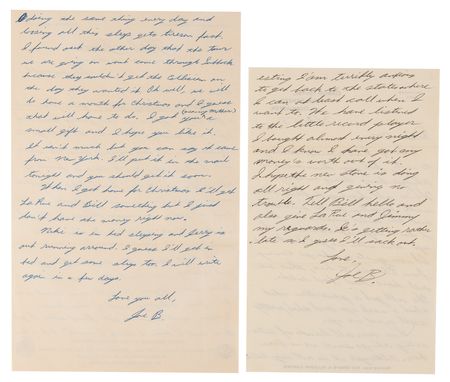 doing the same thing every day and
losing all this sleep gets tiresom fast.
I found out the other day that the tour
we are going on wont come through Lubbock
because they couldn't get the Coliseum on
the day they wanted it. Oh well, we will
be home a month for Christmas and I guess
that will have to do. I got you (meaning Mother) a
small gift and I hope you like it.
It isn't much but you can say it came
from New York. I'll put it in the mail
tonight and you should get it soon.
When I get home for Christmas I'll get
La Rue and Bill something but I just
don't have the money right now.
Niki is in bed sleeping and Jerry is
out running around. I guess I'll get in
bed and get some sleep too. I will write
again in a few days.
Love you all,
Joe B.
esting I am terribly anxious
to get back to the states where
I can at least call when I
want to. We have listened
to the little record player
I bought almost every night
and I know I have got my
money's worth out of it.
I hope the new store is doing
all right and giving no
trouble. Tell Bill hello and
also give La Rue and Jimmy
my reguards. It's getting rather
late so I guess I'll sack out.
Love,
Joe B.